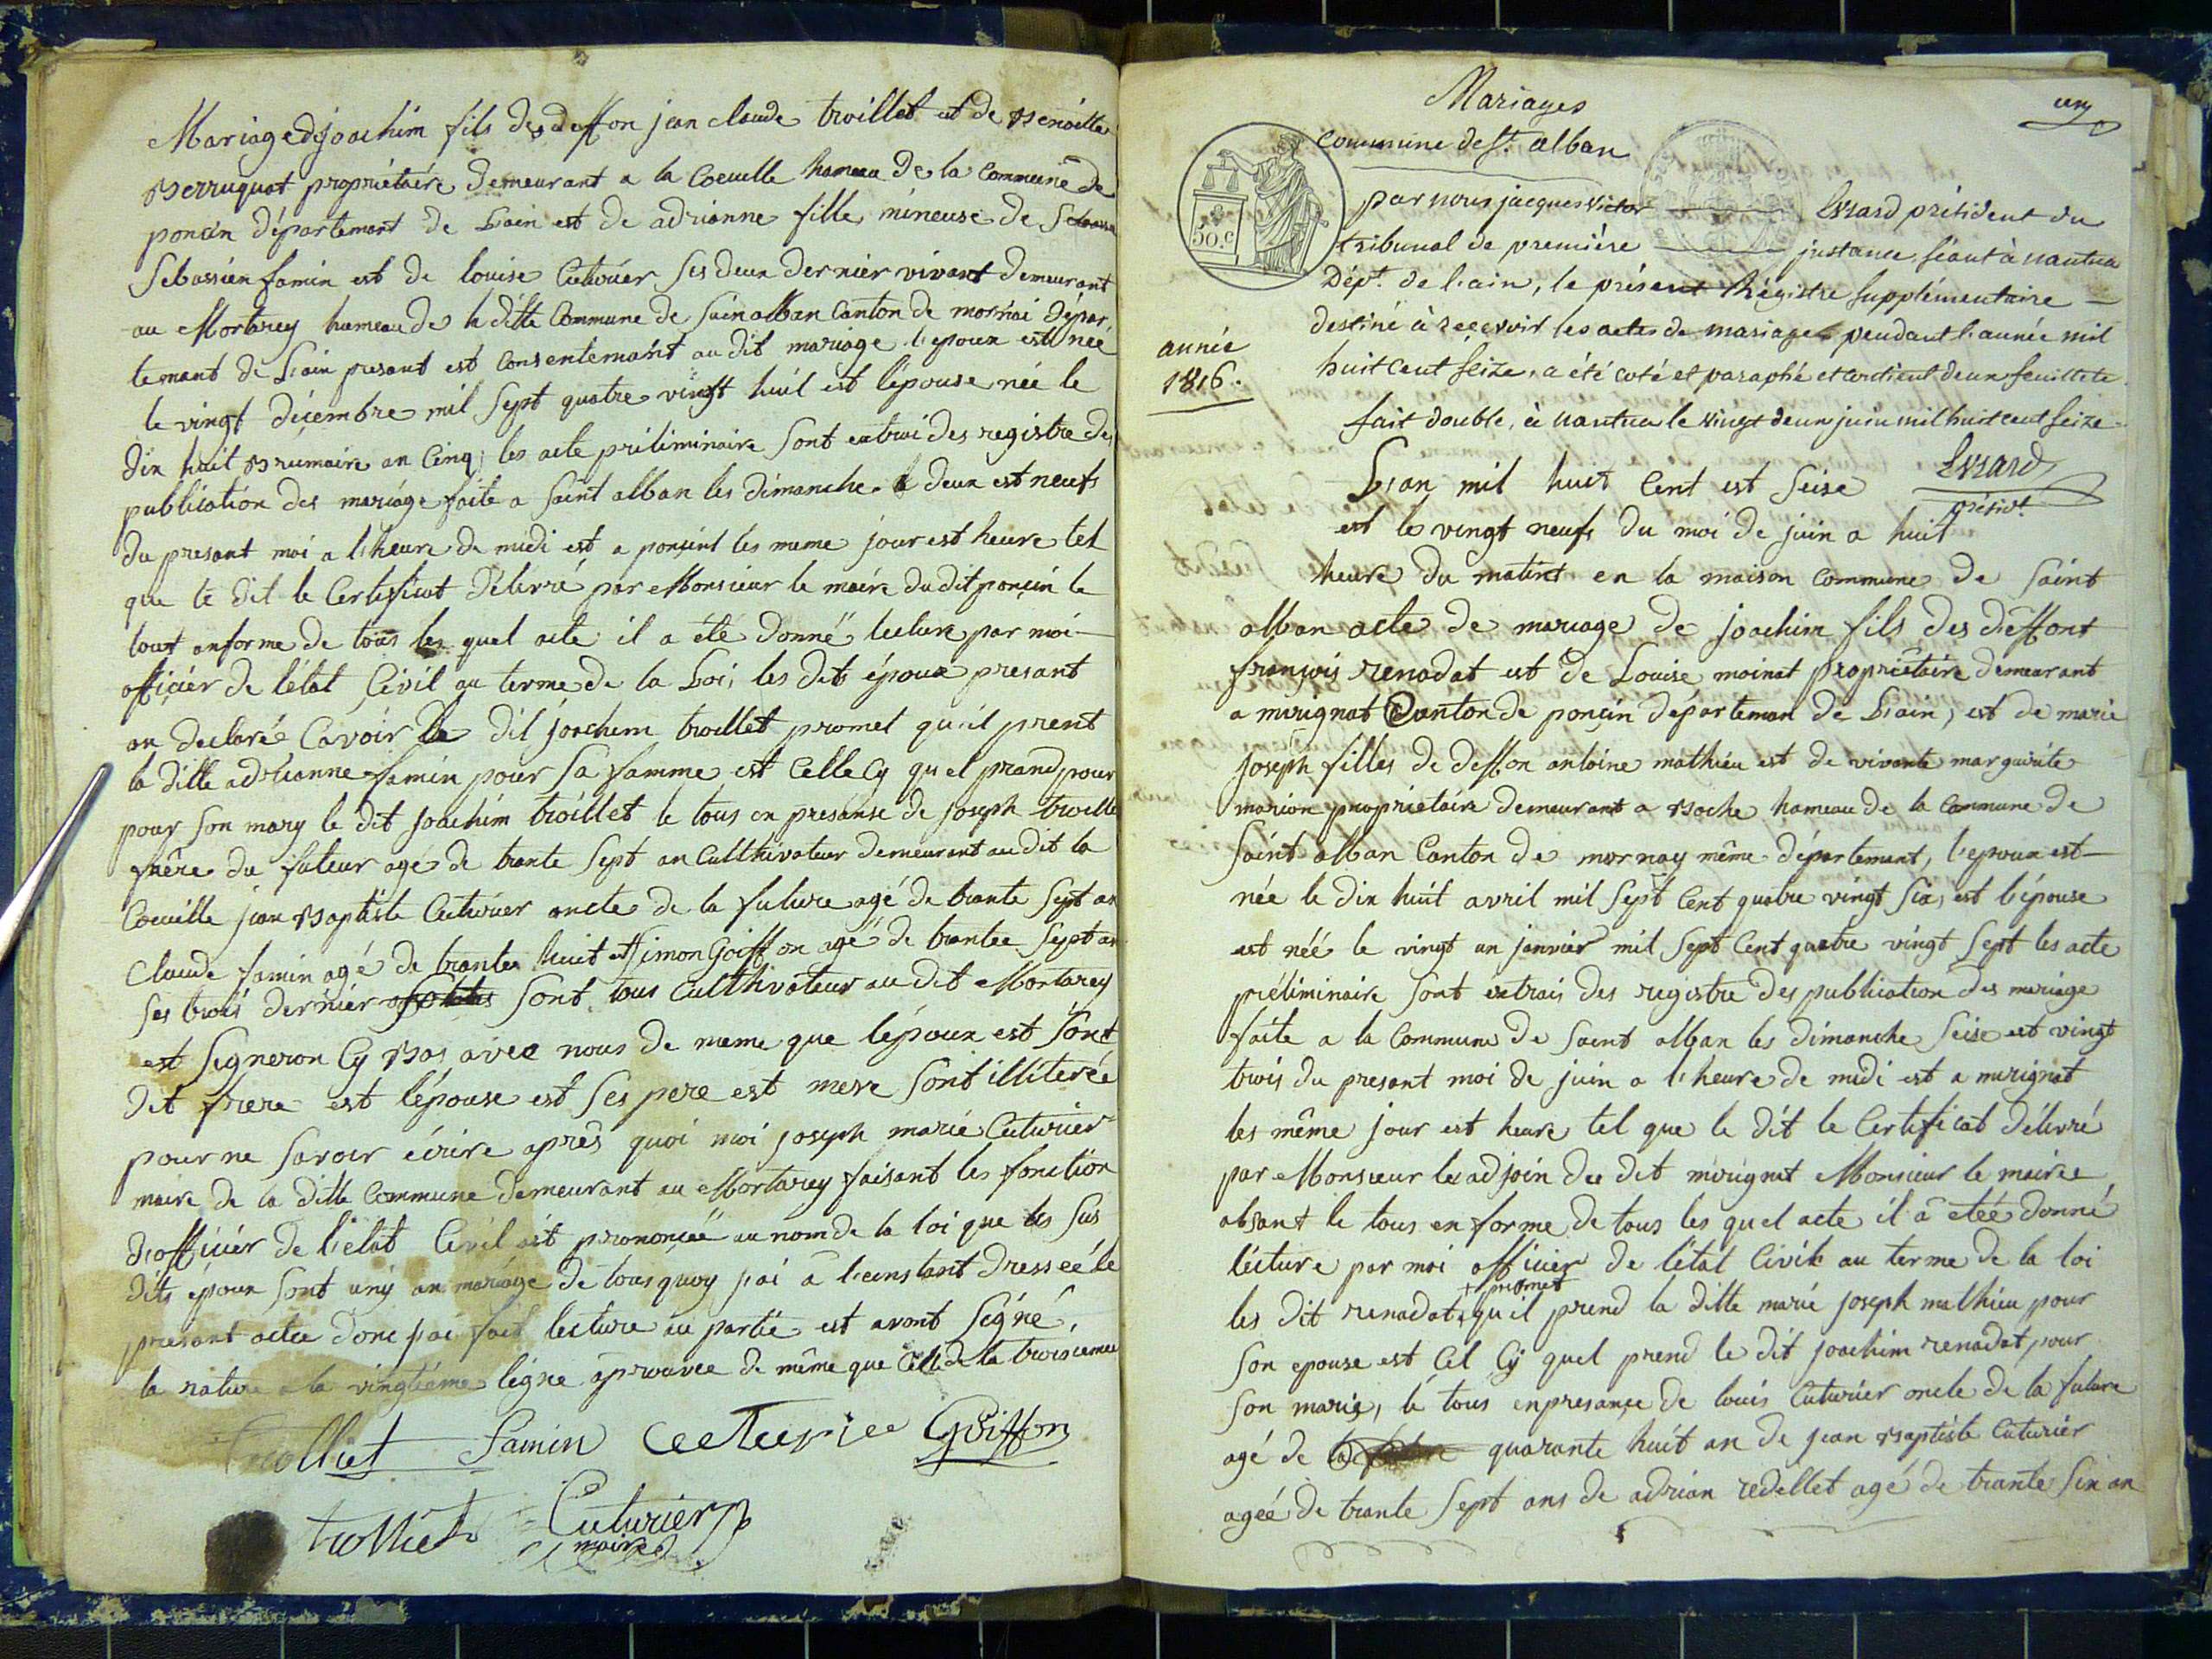 Mariage de joachim fils de deffon jean claude troillet est de Benoitte
Berruquat propriétaire demeurant a la Coeuille hameau de la Commune de
poncin département de L'ain est de adrianne fille mineuse de
Sebassien famin est de louise Cuturier Ses deux dernier vivant demeurant
au Mortarey hameau de la ditte Commune de Sain alban Canton de mornai dépar
temant de L'ain presant est Consentemant au dit mariage l'epoux est née
le vingt décembre mil Sept quatre vingt huit est l'épouse née le
dix huit Brumaire an Cinq, les acte priliminaire Sont extrai des registre des
publication des mariage faite a Saint alban les dimanche deux est neufs
du presant moi a l'heure de midi est a poncint les meme jour est heure tel
que le dit le Certificat délivré par Monsieur le maire du dit poncin le
tout enforme de tous les quel acte il a été donné lecture par moi
officier de l'état Civil au terme de la Loi, les dits époux presant
on declaré Cavoir le dit joachim troillet promet qu'il prent
la ditte adrianne famin pour Sa famme est Celle Cy quel prand pour
pour Son mary le dit joachim troillet le tous en presanse de joseph troille
frere du futeur agé de trante Sept an Culthivateur demeurant au dit la
Coeuille jean Baptiste Cuturier oncle de la future agé de trante Sept an
Claude famin agé de trante huit et Simon Goiffon agé de trante Sept an
Ses trois dernier Sont tous Culthivateur au dit Mortarey
est Segneron Cy Bas avec nous de meme que l'époux est Sont
dit frere est l'épouse est Ses pere est mere Sont illiterée
pour ne Savoir écrire après quoi moi joseph marie Cuturier
maire de la ditte Commune demeurant au Mortarey faisant les fonction
d'officier de l'etat Civil ait prononcéé au nom de la loi que les Sus
dits époux Sont uny an mariage de tous quoy j'ai a l'eenstant dresséé le
presant actee donc j'ai fait lecture au partie est avont Segné,
la rature a la vingtiéme legne aprouvee de même que Celle de la troisieme
trolliet famin Cuturier Goiffon
trolliet Cuturier
maire
Mariages
un
commune de St. alban
par nous jacques Victor Evrard président du
50.C
tribunal de première instance séant à nantua
Dépt. de l'ain, le présent Régistre supplémentaire
destiné à recevoir les actes de mariages pendant l'année mil
année
1816.
huit cent seize, a été coté et paraphé et contient deux feuillets
fait double, à nantua le vingt deux juin mil huit cent seize
Evrard
présidt.
L'an mil huit Cent est Seise
est le vingt neufs du moi de juin a huit
heure du matint en la maison Commune de Saint
alban acte de mariage de joachim fils des deffont
françois renadat est de Louise moinat propriétaire demeurant
a merignat Canton de poncin départeman de L'ain, est de marie
joseph filles de deffon antoine mathieu est de vivante margueritte
marion propriétaire demeurant a Boche hameau de la Commune de
Saint alban Canton de mornay même département, l'epoux est
née le dix huit avril mil Sept Cent quatre vingt Six, est l'épouse
est néé le vingt un janvier mil Sept Cent quatre vingt Sept les acte
préliminaire Sont extrais des registre des publication des mariage
faite a la Commune de Saint alban les dimanche Seise est vingt
trois du presant moi de juin a l'heure de midi est a merignat
les même jour est heure tel que le dit le Certificat délivré
par Monsieur le adjoin du dit merignat Monsieur le mairee
absant le tous en forme de tous les quel acte il a etéé donné
lécture par moi officier de l'état Civil au terme de la loi
+ promet
les dit renadat + qu'il prend la ditte marie joseph mathieu pour
Son epouse est Cel Cy quel prend le dit joachim renadat pour
Son marie, le tous enpresance de louis Cuturier oncle de la future
agé de quarante huit an de jean Baptiste Cuturier
agéé de trante Sept ans de adrian redellet agé de trante Six an